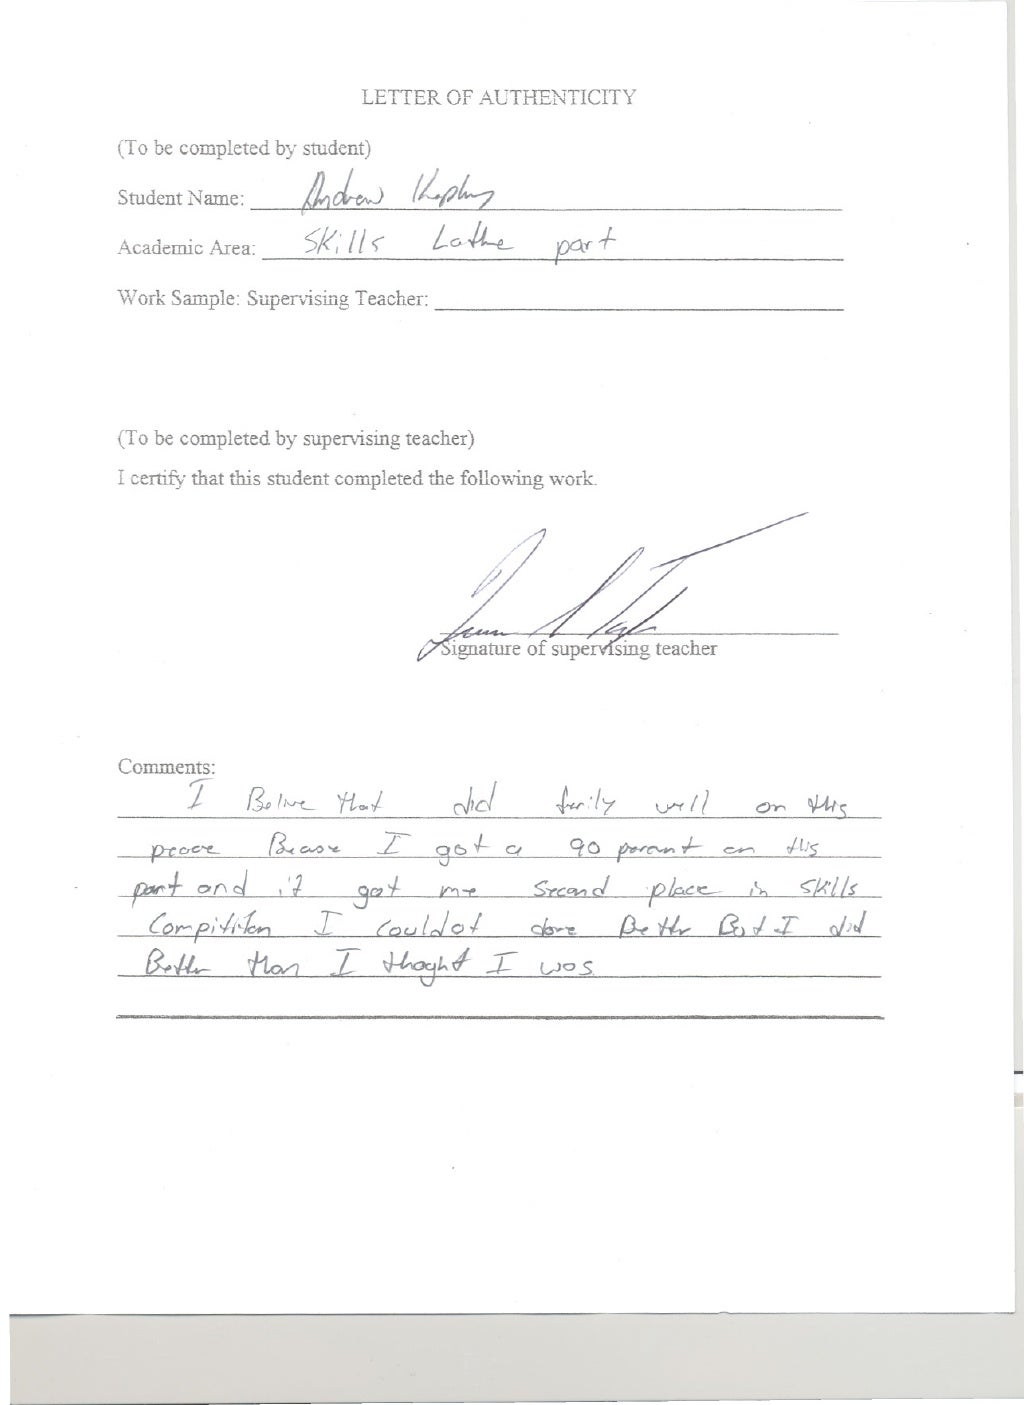 LETTER OF AUTHENTICITY
(To be completed by student)
Student Name: Andrew
Academic Area: Skills Lathe part
Work Sample: Supervising Teacher:
(To be completed by supervising teacher)
I certify that this student completed the following work.
Signature of supervising teacher
Comments:
I Belive that did farily well on this
peace Becase I got a 90 percent on this
part and it got me Second place in Skills
Compitition I couldot done Better But I did
Better than I thoght I was